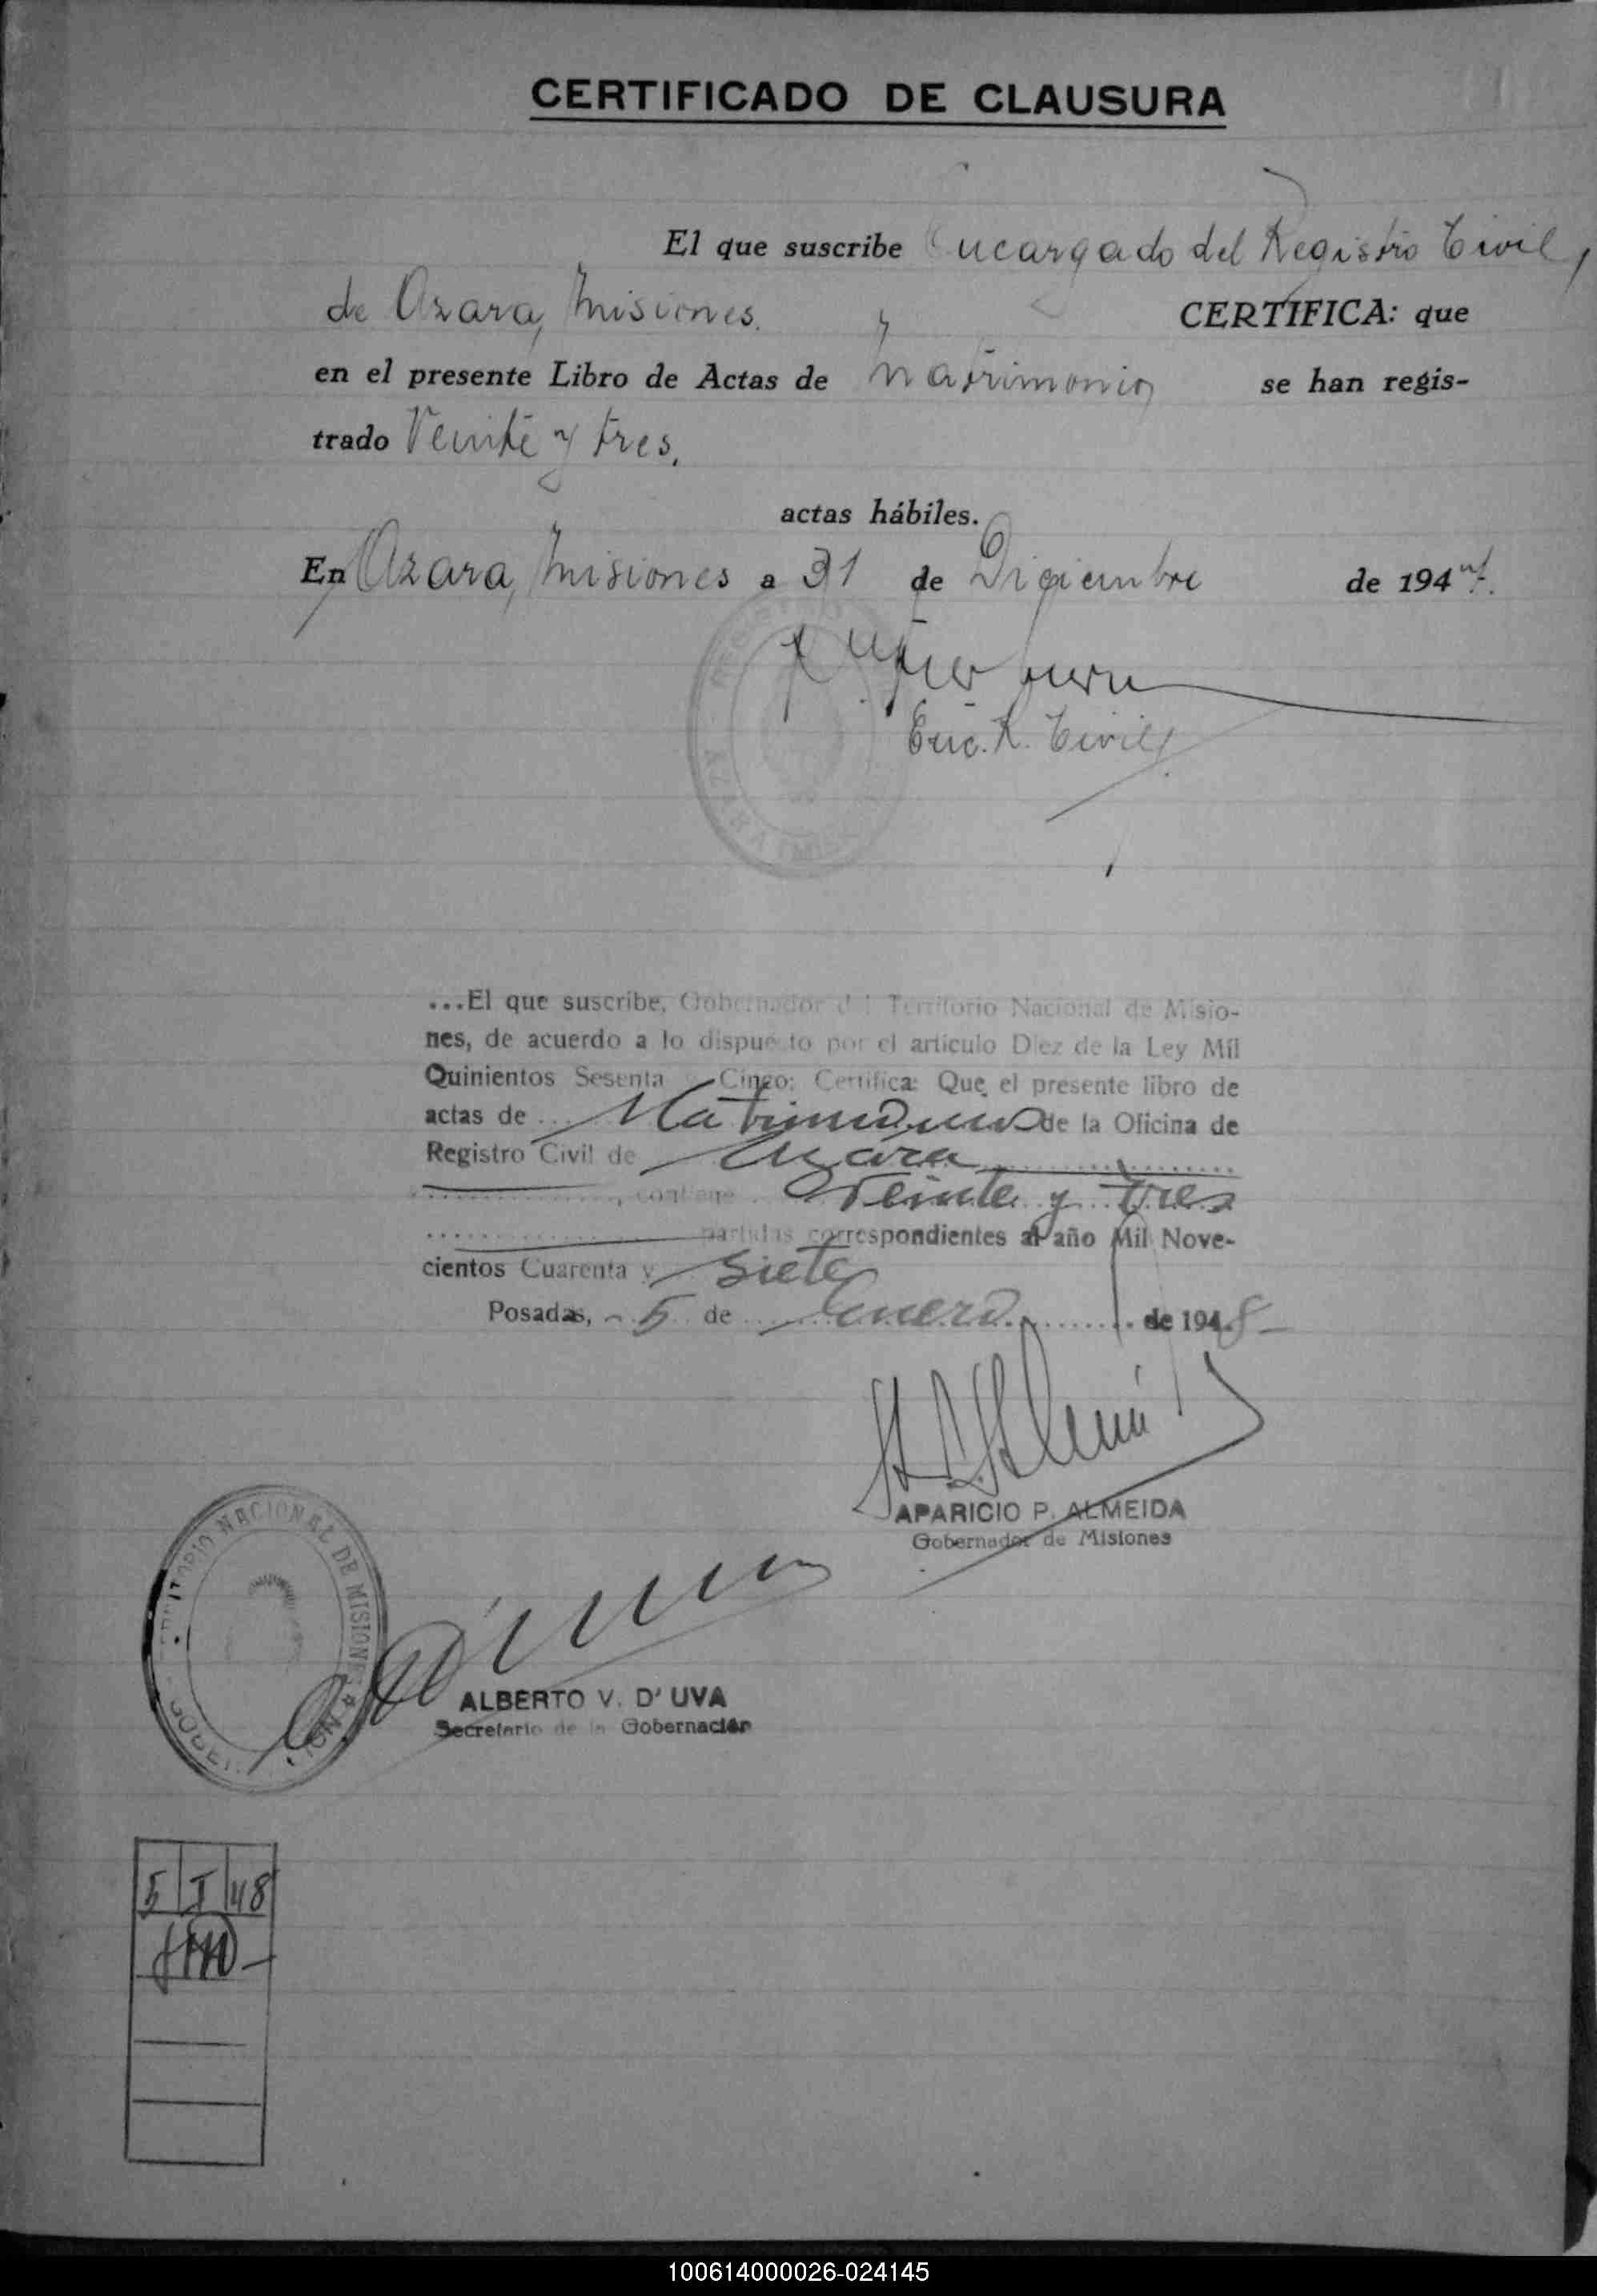 CERTIFICADO DE CLAUSURA
El que suscribe Encargado del Registro Civil,
de Azara, Misiones. CERTIFICA: que
en el presente Libro de Actas de Matrimonio se han regis-
trado Veinte y tres.
actas hábiles.
En Azara, Misiones a 31 de Diciembre de 1947.
Enc. R. Civil
AZARA
...El que suscribe, Gobernador del Territorio Nacional de Misio-
nes, de acuerdo a lo dispuesto por el artículo Diez de la Ley Mil
Quinientos Sesenta y Cinco; Certifica: Que el presente libro de
actas de Matrimonios de la Oficina de
Registro Civil de Azara
, contiene Veinte y tres
partidas correspondientes al año Mil Nove-
cientos Cuarenta y siete
Posadas, 5 de Enero de 1948
APARICIO P. ALMEIDA
Gobernador de Misiones
TERRITORIO NACIONAL DE MISIONES
ALBERTO V. D' UVA
Secretario de la Gobernación
5 I 48
100614000026-024145